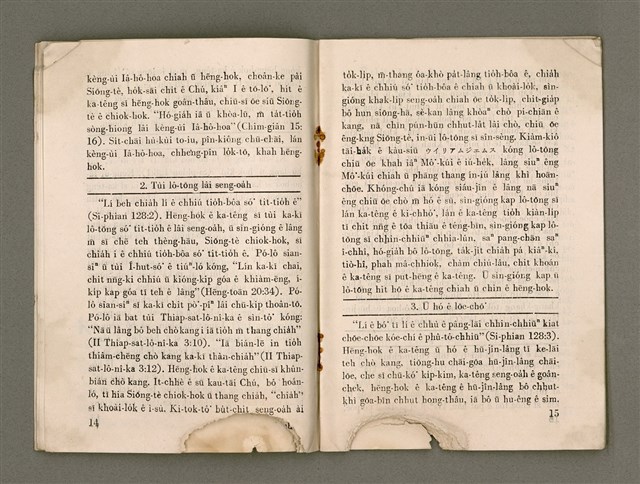 kèng-ùi Iâ-hô-hoa chiah ū hēng-hok, choân-ke pài
Siōng-tè, ho̍k-sāi chit ê Chú, kiâⁿ I ê tō-lō͘, hit ê
ka-têng sī hēng-hok goân-thâu, chiū-sī óe siū Siōng-
tè ê chiok-hok. "Hó-gia̍h iā ū khòa-lū, m̄ ta̍t-tio̍h
sòng-hiong lâi kèng-ùi Iâ-hô-hoa" (Chim-giân 15:
16). Si̍t-chāi hù-kùi to-iu, pîn-kiông chū-chāi, lán
kèng-ùi Iâ-hô-hoa, chheng-pîn lo̍k-tō, khah hēng-
hok.
2. Tùi lô-tōng lâi seng-oa̍h
"Lí beh chia̍h lí ê chhiú tio̍h-bôa só͘ tit-tio̍h ê"
(Si-phian 128:2). Hēng-hok ê ka-têng sī tùi ka-kī
lô-tōng só͘ tit-tio̍h ê lâi seng-oa̍h, ū sin-gióng ê lâng
m̄ sī chē teh thèng-hāu, Siōng-tè chiok-hok, sī
chia̍h i ê chhiú tio̍h-bôa só͘ tit-tio̍h ê. Pó-lô sian-
siⁿ ū tùi Í-hut-só͘ ê tiúⁿ-ló kóng, "Lín ka-kī chai,
chit nn̄g-ki chhiú ū kiong-kip góa ê khiàm-ēng, i-
ki̍p kap góa tī teh ê lâng" (Hēng-toān 20:34). Pó-
lô sian-siⁿ sī ka-kī chit pò͘-pîⁿ lâi chū-kip thoân-tō.
Pó-lô iā bat tùi Thiap-sat-lô-nî-ka ê sìn-tô͘ kóng:
"Nāū lâng bô beh chò kang i iā tio̍h m̄ thang chia̍h"
(II Thiap-sat-lô-nî-ka 3:10). "Iā bián-lē in tio̍h
thiām-chēng chò kang ka-kī thàn-chia̍h" (II Thiap-
sat-lô-nî-ka 3:12). Hēng-hok ê ka-têng chiū-sī khûn-
biān chò kang. It-chhè ê sū kau-tāi Chú, bô hoân-
ló, tī hia Siōng-tè chiok-hok ū thang chia̍h, "chia̍h"
sī khoài-lo̍k ê ì-sù. Ki-tok-tô͘ bu̍t-chit seng-oa̍h ài
14
to̍k-li̍p, m̄-thang óa-khò pa̍t-lâng tio̍h-bôa ê, chia̍h
ka-kī ê chhiú só͘ tio̍h-bôa ê chiah ū khoài-lo̍k, sìn-
gióng khak-li̍p seng-oa̍h chiah óe to̍k-li̍p, chit-gia̍p
bô hun siōng-hā, sè-kan lâng khòaⁿ chò pi-chiān ê
kang, nā chīn pún-hūn chhut-la̍t lâi chò, chiū óe
êng-kng Siōng-tè, in-ūi lô-tōng sī sîn-sèng. Kiâm-kiò
tāi-ha̍k ê kàu-siū ウイリアムジエムス kóng lô-tōng
chiū óe khah iâⁿ Mô͘-kúi ê iú-he̍k. lâng siuⁿ ēng
Mô͘-kúi chiah ū phāng thang ín-iú lâng khì hoān-
chōe. Khóng-chú iā kóng siáu-jîn ê lâng nā siuⁿ
êng chiū óe chò m̄ hó ê sū. sìn-gióng kap lô-tōng sī
lán ka-têng ê ki-chhó͘, lán ê ka-têng tio̍h kiàn-li̍p
tī chit nn̄g ê tōa thiāu ê téng-bīn, sìn-gióng kap lô-
tōng sī chhin-chhiūⁿ chhia-lûn, saⁿ pang-chān saⁿ
i-chhî, hó-gia̍h bô lô-tōng, ta̍k-ji̍t chia̍h pá kiâⁿ-kî,
tio̍-hî, phah mâ-chhiok, chām chiú-lâu, chit khoán
ê ka-têng sī put-hēng ê ka-têng. Ū sìn-gióng kap ū
lô-tōng hit hō ê ka-têng chiah ū chin ê hēng-hok.
3. Ū hó ê lōe-chō͘
"Lí ê bó͘ tī lí ê chhù ê pâng-lāi chhin-chhiūⁿ kiat
chōe-chōe kóe-chí ê phû-tô-chhiū" (Si-phian 128:3).
Hēng-hok ê ka-têng ū hó ê hū-jîn-lâng tī ke-lāi
teh chò kang, tiong-hu chāi-gōa hū-jîn-lâng chāi-
lōe, che sī chū-kó͘ kip-kim, ka-têng seng-oa̍h ê goân-
chek, hēng-hok ê ka-têng ê hū-jîn-lâng bô chhut-
khì góa-bīn chhut hong-thâu, iā bô ū hu-êng ê sim.
15